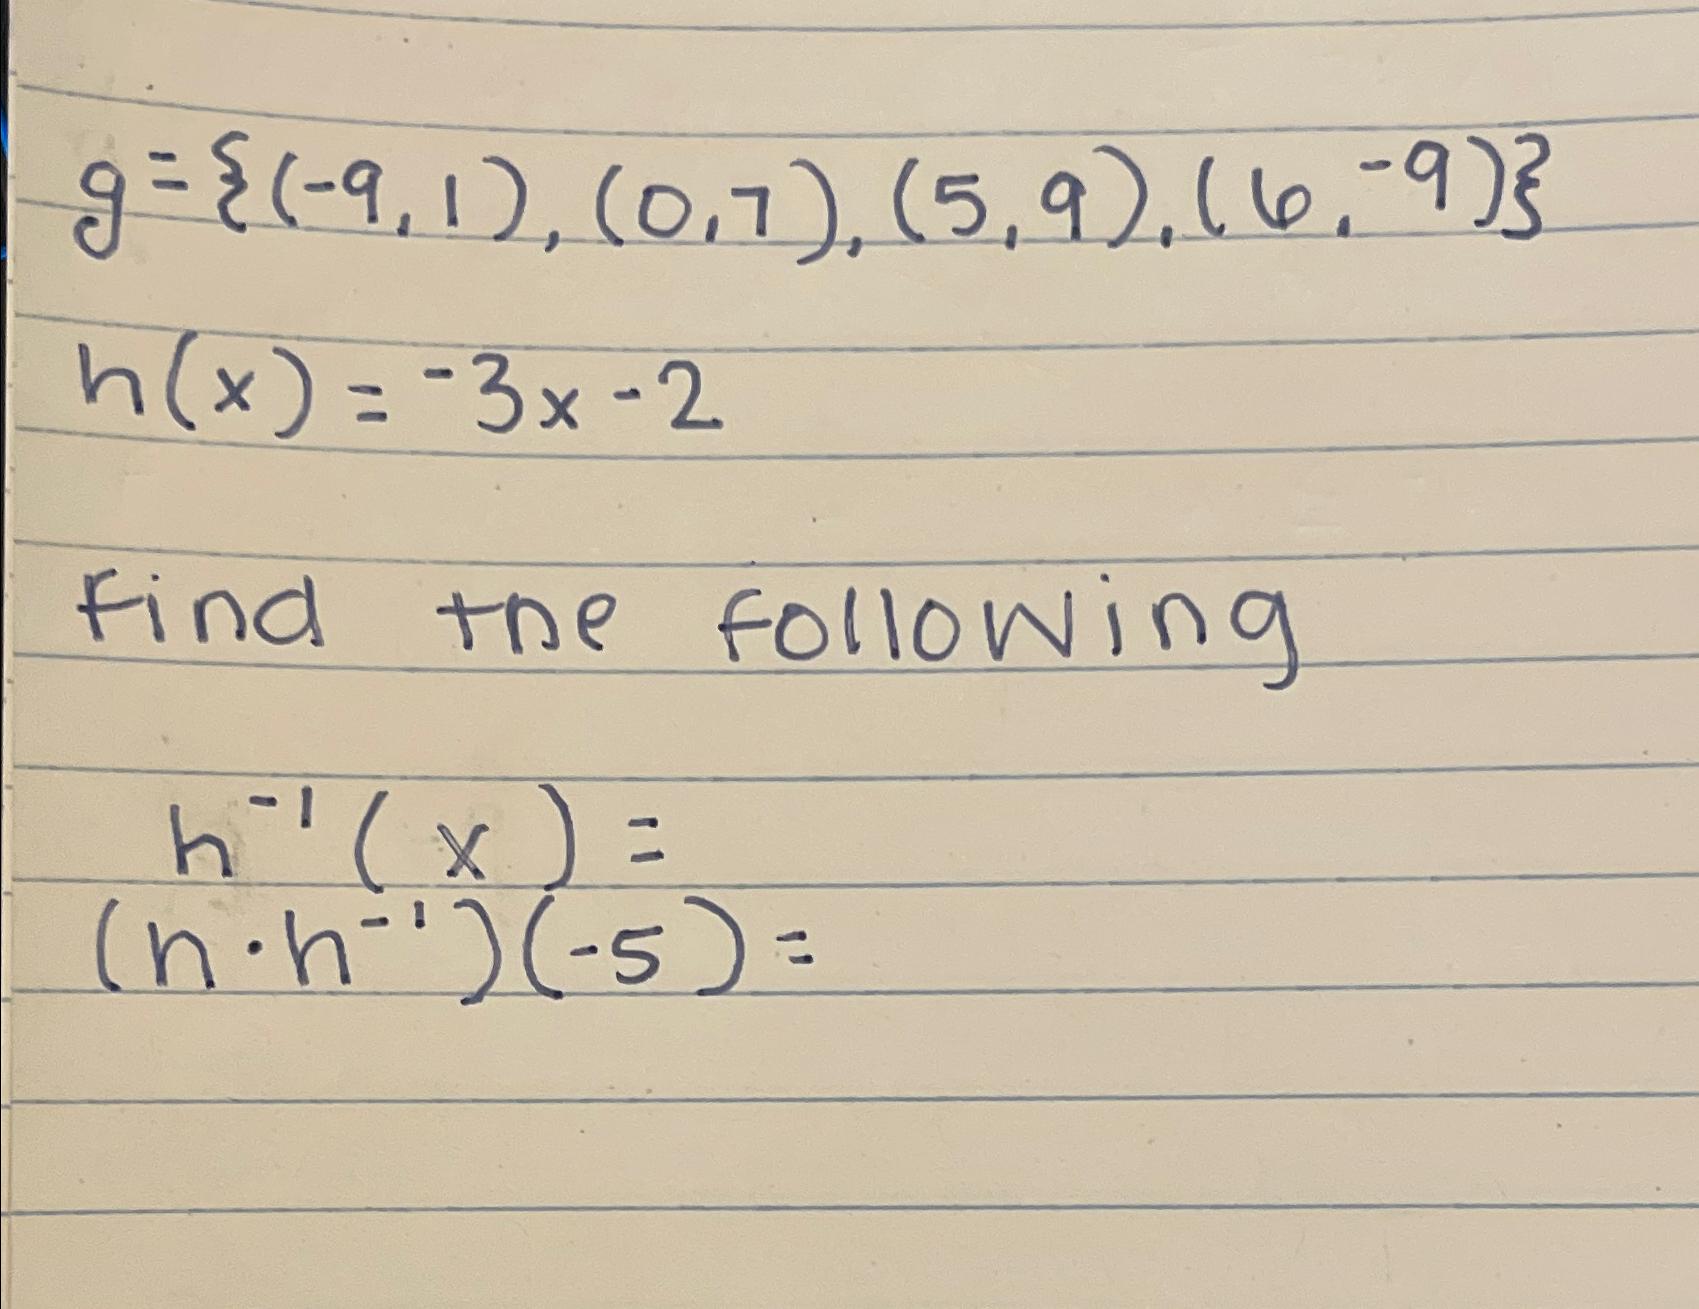 g={(-9,1),(0,7),(5,9),(6,-9)}
h(x)=-3x-2
Find the following
h⁻¹(x)=
(h·h⁻¹)(-5)=